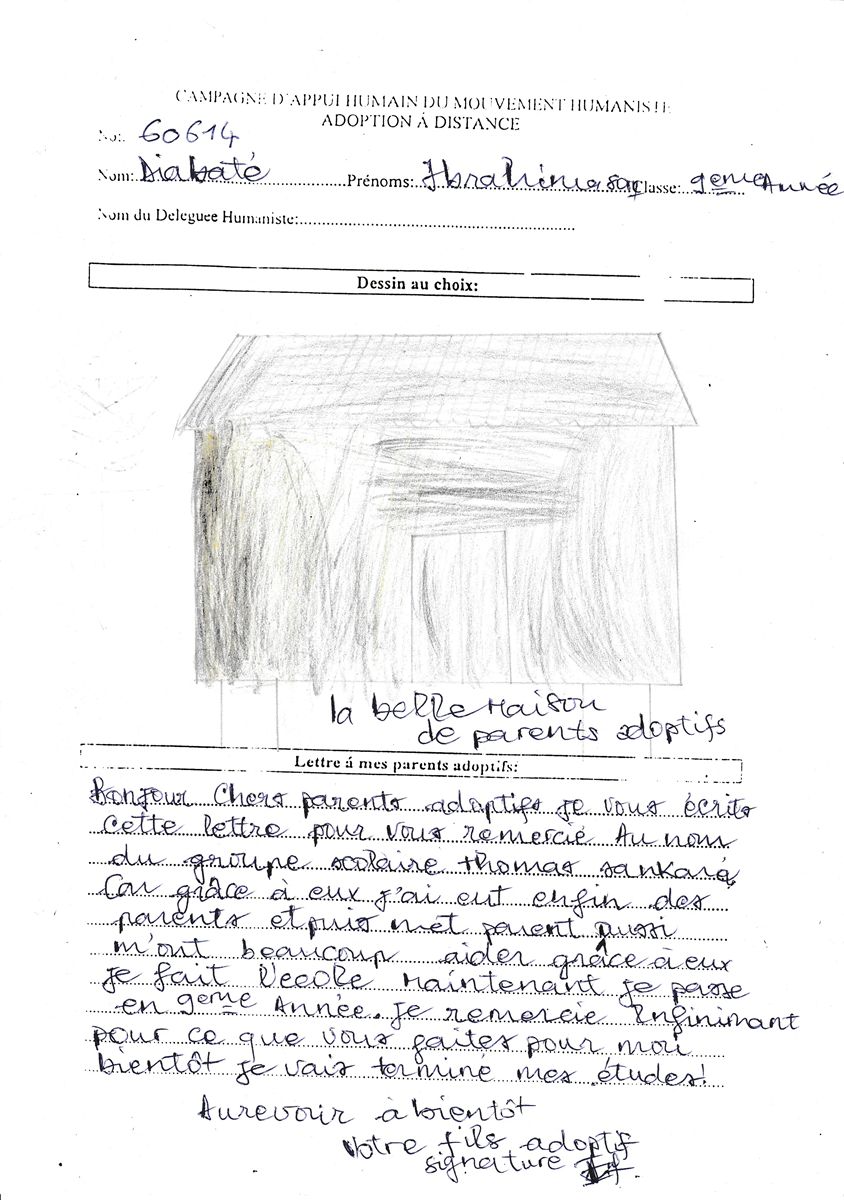 CAMPAGNE D'APPUI HUMAIN DU MOUVEMENT HUMANISTE
ADOPTION À DISTANCE
No:. 60614
Nom: Diabaté Prénoms: Ibrahima sory Classe: 9eme Année
Nom du Deleguee Humaniste:
Dessin au choix:
la belle Maison
de parents adoptifs
Lettre á mes parents adoptifs:
Bonjour Chers parents adoptifs je vous écrits
cette lettre pour vous remercie Au nom
du groupe scolaire thomas sankara,
Car grâce à eux j'ai eut enfin des
parents et puis met parent aussi
m'ont beaucoup aider grâce à eux
je fait l'ecole Maintenant je passe
en 9eme Année. Je remercie Infinimant
pour ce que vous faites pour moi
bientôt je vais terminé mes études!
Aurevoir à bientôt
Votre fils adoptif
signature